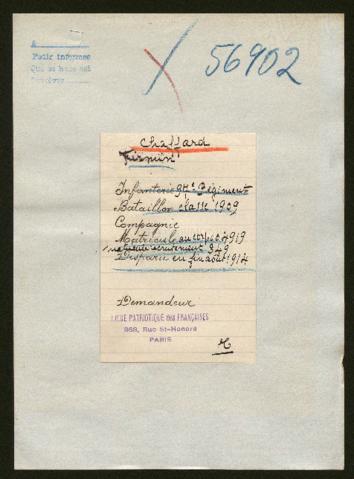 A
Pudir informee
56902
Chaffard
Infanterie 97e Régiment
Bataillon classe 1909
Compagnie
Matricule au corps 0919
matricule recrutement 949
Disparu en fin août 1914
Demandeur
LIGUE PATRIOTIQUE DES FRANÇAISES
368, Rue St-Honoré
PARIS